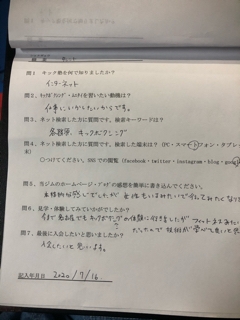 問1 キック拳を何で知りましたか？
インターネット
問2、キックボクシング・を習いたい動機は？
仕事にいかしたいからです。
問3、ネット検索した方に質問です。検索キーワードは？
各務原 キックボクシング
問4、ネット検索した方に質問です。検索した端末は？（PC・スマートフォン・タブレ
末）
○つけてください。SNSでの閲覧（facebook・twitter・instagram・blog・goo
問5、当ジムのホームページ・ブログの感想を簡単に書き込んでください。
本格的な感じでしたが 女性もいるみたいで行ってみたくなり
問6、見学・体験してみていかがでしたか？
今まで 名古屋でもキックボクシングの体験に行きましたが フィットネスみたい
だったので 技術が学べて良いと思
問7、最後に入会したいと思いましたか？
入会したいと思います。
記入年月日 2020/7/16